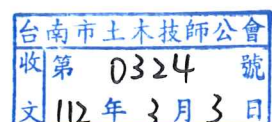 台南市土木技師公會
收 第 0324 號
文 112 年 3 月 3 日